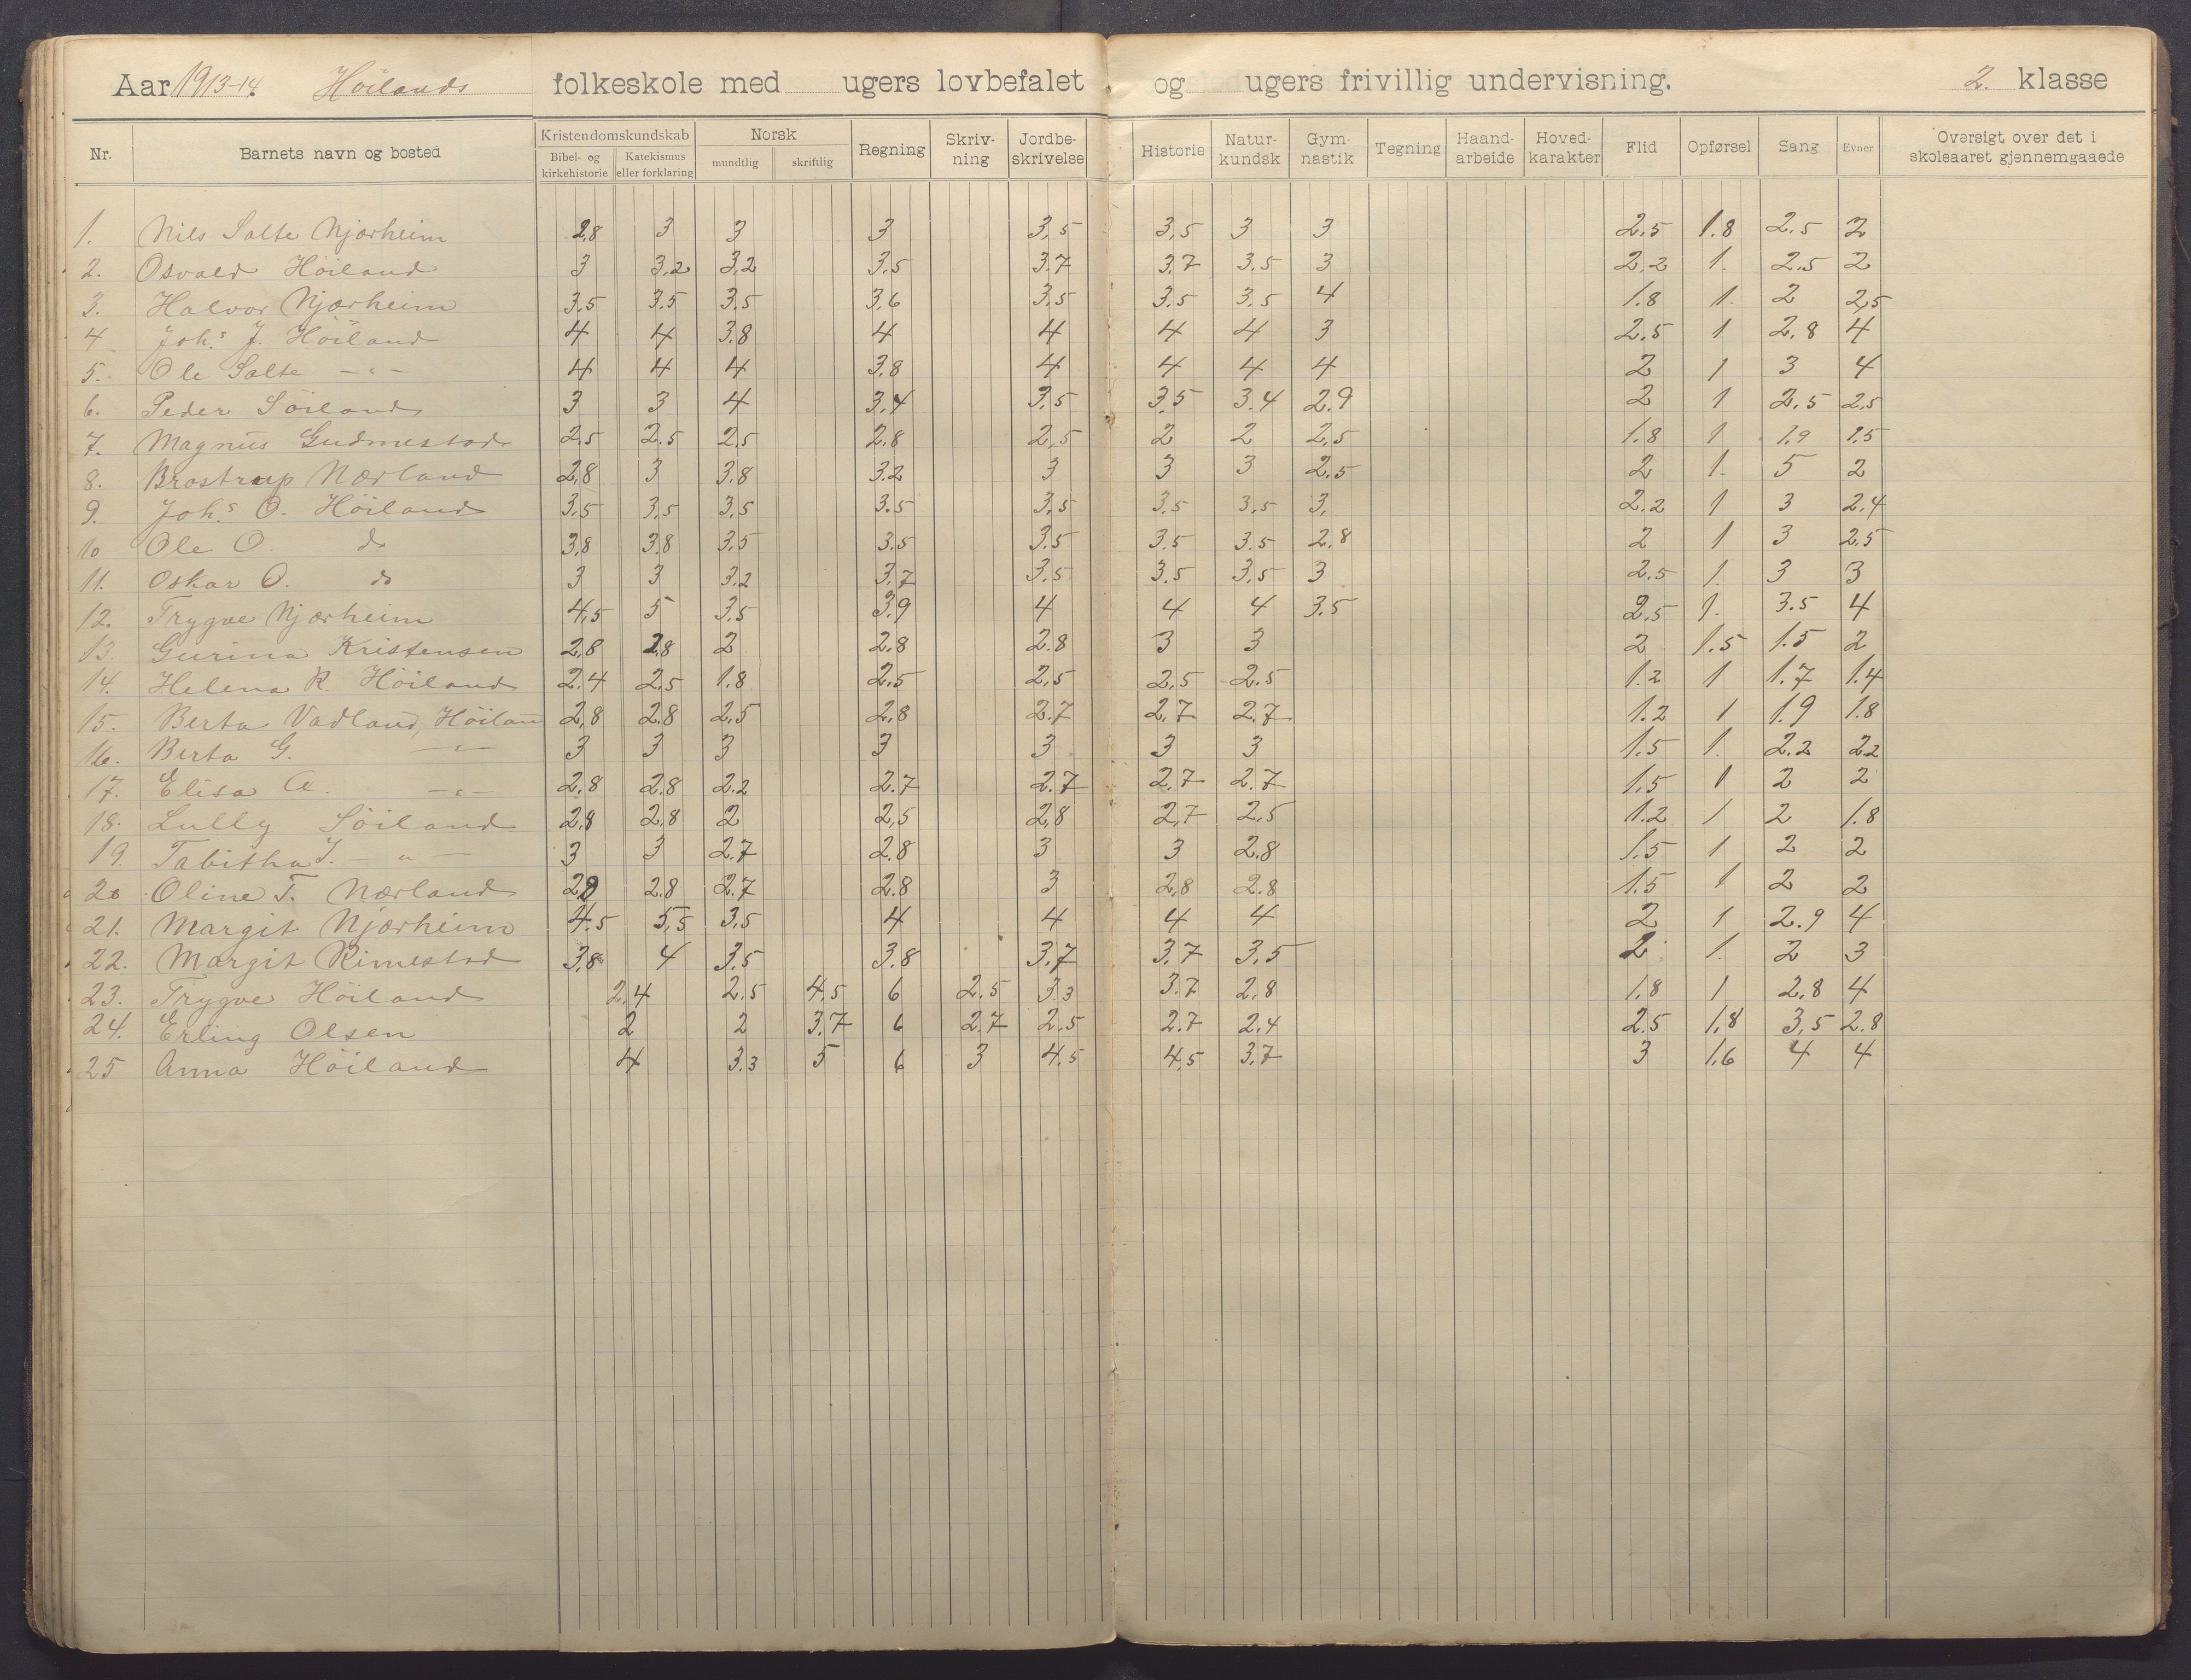 Aar 1913-14. Höilands folkeskole med ugers lovbefalet og ugers frivillig undervisning. 2. klasse
Nr. Barnets navn og bosted Kristendomskundskab Bibel- og kirkehistorie Katekismus eller forklaring Norsk mundtlig skriftlig Regning Skriv-ning Jordbe-skrivelse Historie Natur-kundsk Gym-nastik Tegning Haand-arbeide Hoved-karakter Flid Opførsel Sang Evner Oversigt over det i skoleaaret gjennemgaaede
1. Nils Salte Njærheim 2,8 3 3 3 3,5 3,5 3 3 2.5 1.8 2.5 2
2. Osvald Höiland 3 3,2 3,2 3.5 3.7 3.7 3.5 3 2,2 1. 2.5 2
3. Halvor Njærheim 3.5 3.5 3.5 3,6 3,5 3.5 3,5 4 1.8 1. 2 2,5
4 Johs J. Höiland 4 4 3.8 4 4 4 4 3 2.5 1 2,8 4
5. Ole Salte -"- 4 4 4 3,8 4 4 4 4 2 1 3 4
6. Peder Söiland 3 3 4 3,4 3,5 3.5 3.4 2.9 2 1 2,5 2,5
7. Magnus Gudmestad 2.5 2.5 2.5 2.8 2,5 2 2 2,5 1.8 1 1.9 1.5
8. Brostrup Nærland 2,8 3 3.8 3.2 3 3 3 2.5 2 1. 5 2
9. Johs O. Höiland 3,5 3,5 3,5 3.5 3,5 3.5 3,5 3, 2.2 1 3 2,4
10 Ole O. do 3,8 3.8 3,5 3.5 3.5 3.5 3.5 2,8 2 1 3 2.5
11. Oskar O. do 3 3 3,2 3,7 3.5 3.5 3,5 3 2.5 1. 3 3
12. Trygve Njærheim 4,5 5 3,5 3.9 4 4 4 3.5 2.5 1. 3.5 4
13. Gurina Kristensen 2,8 2,8 2 2.8 2.8 3 3 2 1.5 1.5 2
14. Helena R. Höiland 2.4 2,5 1.8 2,5 2,5 2,5 2.5 1.2 1 1.7 1.4
15. Berta Vadland, Höilan 2,8 2.8 2,5 2,8 2.7 2,7 2.7 1.2 1 1.9 1.8
16. Berta G. -"- 3 3 3 3 3 3 3 1.5 1. 2.2 2.2
17. Elisa A. -"- 2,8 2.8 2.2 2.7 2.7 2,7 2.7 1.5 1 2 2
18. Lully Söiland 2,8 2,8 2 2,5 2,8 2,7 2,5 1.2 1 2 1.8
19. Tabitha T. -"- 3 3 2.7 2.8 3 3 2.8 1.5 1 2 2
20 Oline T. Nærland 2,8 2.8 2.7 2.8 3 2,8 2.8 1.5 1 2 2
21. Margit Njærheim 4.5 5,5 3.5 4 4 4 4 2 1 2.9 4
22. Margit Rimestad 3,8 4 3.5 3.8 3.7 3.7 3,5 2 1. 2 3
23. Trygve Höiland 2,4 2,5 4,5 6 2.5 3.3 3.7 2,8 1,8 1 2,8 4
24. Erling Olsen 2 2 3.7 6 2.7 2.5 2.7 2,4 2.5 1,8 3,5 2.8
25 Anna Höiland 4 3.3 5 6 3 4.5 4,5 3.7 3 1.6 4 4